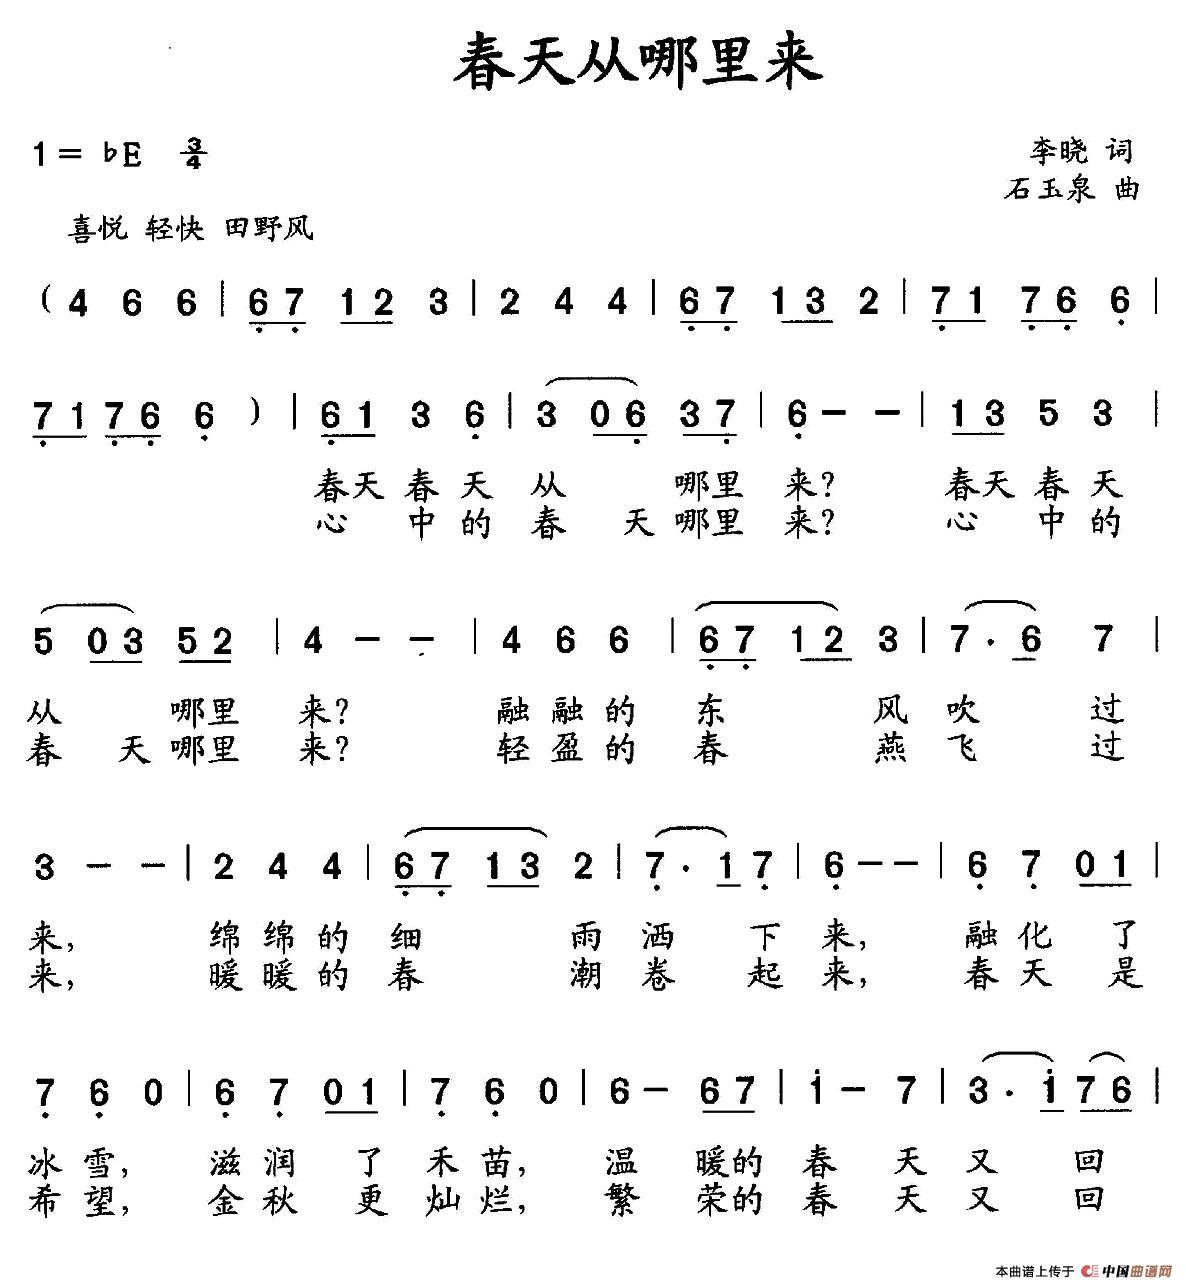 春天从哪里来
1 = ♭E 3/4
李晓 词
石玉泉 曲
喜悦 轻快 田野风
( 4 6 6 | 6 7 1 2 3 | 2 4 4 | 6 7 1 3 2 | 7 1 7 6 6 |
7 1 7 6 6 ) | 6 1 3 6 | 3 0 6 3 7 | 6 - - | 1 3 5 3 |
春天 春 天 从 哪里 来? 春天 春 天
心 中 的 春 天 哪里 来? 心 中 的
5 0 3 5 2 | 4 - - | 4 6 6 | 6 7 1 2 3 | 7 · 6 7 |
从 哪里 来? 融 融 的 东 风 吹 过
春 天 哪里 来? 轻 盈 的 春 燕 飞 过
3 - - | 2 4 4 | 6 7 1 3 2 | 7 · 1 7 | 6 - - | 6 7 0 1 |
来, 绵 绵 的 细 雨 洒 下 来, 融 化 了
来, 暖 暖 的 春 潮 卷 起 来, 春 天 是
7 6 0 | 6 7 0 1 | 7 6 0 | 6 - 6 7 | i - 7 | 3 · i 7 6 |
冰 雪, 滋 润 了 禾 苗, 温 暖的 春 天 又 回
希 望, 金 秋 更 灿 烂, 繁 荣的 春 天 又 回
本曲谱上传于 中国曲谱网